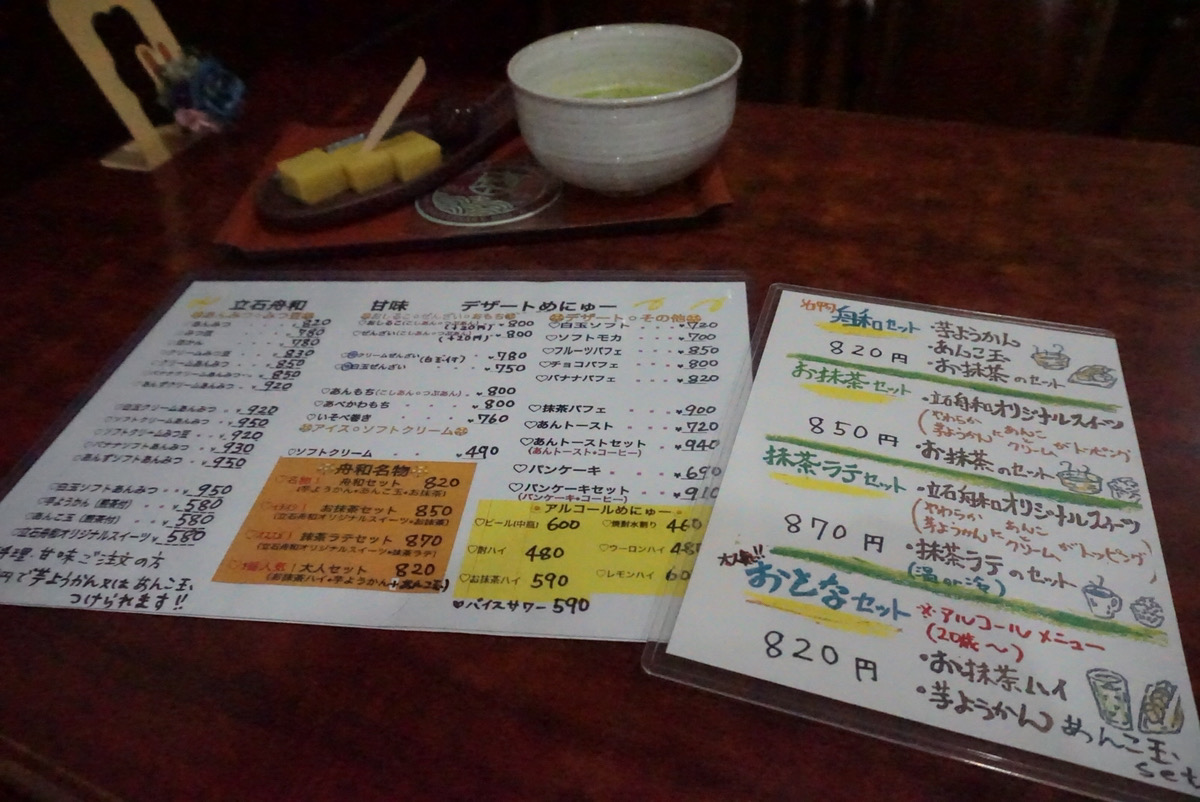 立石舟和 甘味 デザートめにゅー
あんみつ 820
780
780
クリームみつ豆 830
850
クリームあんみつ 850
あんずクリームあんみつ 920
白玉クリームあんみつ 920
ソフトクリームあんみつ 950
ソフトクリームみつ豆 920
バナナソフトあんみつ 930
あんずソフトあんみつ 950
白玉ソフトあんみつ ¥950
芋ようかん(煎茶付) ¥580
あんこ玉(煎茶付) ¥580
立石舟和オリジナルスイーツ ¥580
料理、甘味ご注文の方
円で芋ようかん又はあんこ玉、
つけられます!!
おしるこ・ぜんざい・おもち
♡おしるこ(こしあん・つぶあん) ¥800
(+20円)
♡ぜんざい(こしあん・つぶあん) ¥800
(+20円)
クリームぜんざい(白玉付) ¥780
白玉ぜんざい ¥750
♡あんもち(こしあん・つぶあん) ¥800
♡あべかわもち ¥800
♡いそべ巻き ¥760
アイス・ソフトクリーム
♡ソフトクリーム ¥490
舟和名物
♡名物! 舟和セット 820
(芋ようかん+あんこ玉+お抹茶)
お抹茶セット 850
(立石舟和オリジナルスイーツ+お抹茶)
抹茶ラテセット 870
(立石舟和オリジナルスイーツ+抹茶ラテ)
大人セット 820
(お抹茶ハイ+芋ようかん+あんこ玉)
デザート・その他
♡白玉ソフト ¥720
♡ソフトモカ ¥700
♡フルーツパフェ ¥850
♡チョコパフェ ¥800
♡バナナパフェ ¥820
♡抹茶パフェ ¥900
♡あんトースト ¥720
♡あんトーストセット ¥940
(あんトースト+コーヒー)
♡パンケーキ ¥690
♡パンケーキセット ¥910
(パンケーキ+コーヒー)
アルコールめにゅー
♡ビール(中瓶) 600 ♡焼酎水割り 460
♡酎ハイ 480 ♡ウーロンハイ 48
♡お抹茶ハイ 590 ♡レモンハイ 60
♥バイスサワー 590
舟和セット
820円
・芋ようかん
・あんこ玉
・お抹茶のセット
お抹茶セット
850円
・立石舟和オリジナルスイーツ
(やわらか芋ようかんにあんこクリームがトッピング)
・お抹茶のセット
抹茶ラテセット
870円
・立石舟和オリジナルスイーツ
(やわらか芋ようかんにあんこクリームがトッピング)
・抹茶ラテのセット
(温or冷)
大人気!!
おとなセット
820円
※アルコールメニュー
(20歳〜)
・お抹茶ハイ
・芋ようかん
あんこ玉、
set